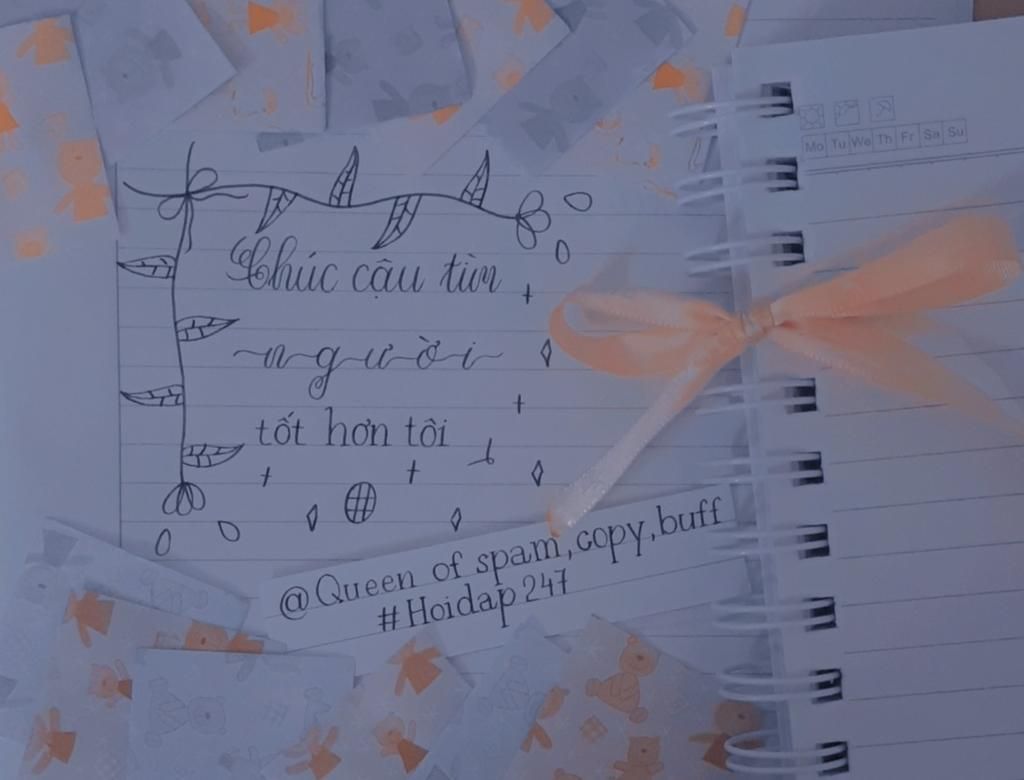 Mo Tu We Th Fr Sa Su
Chúc cậu tìm
người
tốt hơn tôi
@Queen of spam,copy,buff
#Hoidap247